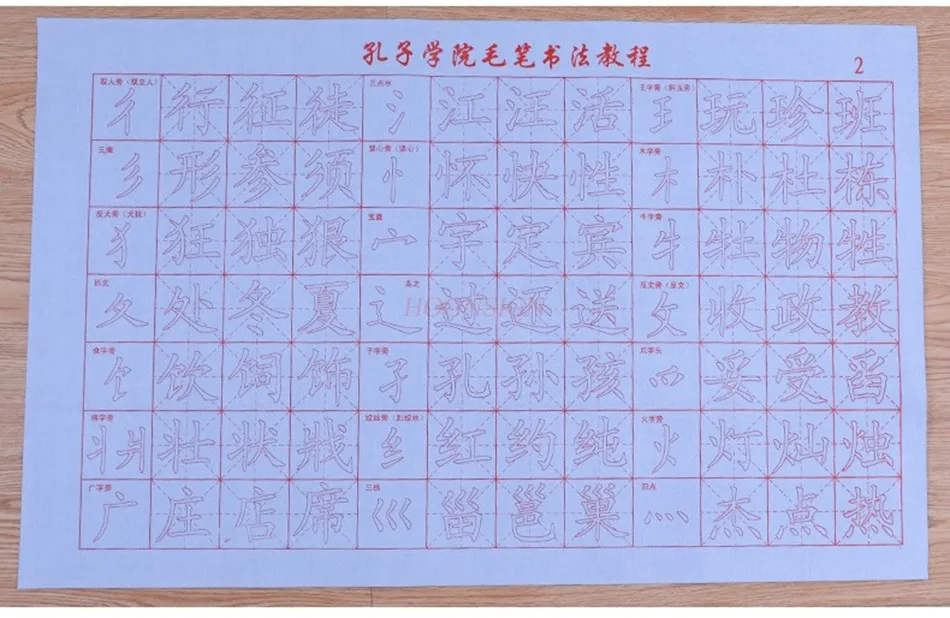 孔子学院毛笔书法教程
2
双人旁（双立人） 三点水 王字旁（斜玉旁）
彳 行 征 徒 氵 江 汪 活 王 玩 珍 班
三撇 竖心旁（竖心） 木字旁
彡 形 参 须 忄 怀 快 性 木 朴 杜 栋
反犬旁（犬犹） 宝盖 牛字旁
犭 狂 独 狠 宀 宇 定 宾 牜 牡 物 牲
折文 走之 反文旁（反文）
夂 处 冬 夏 辶 过 还 送 攵 收 政 教
食字旁 子字旁 爪字头
饣 饮 饲 饰 子 孔 孙 孩 爫 妥 受 舀
将字旁 绞丝旁（乱绞丝） 火字旁
丬爿 壮 状 戕 纟 红 约 纯 火 灯 灿 烛
广字旁 三拐 四点
广 庄 店 席 巛 甾 邕 巢 灬 杰 点 热